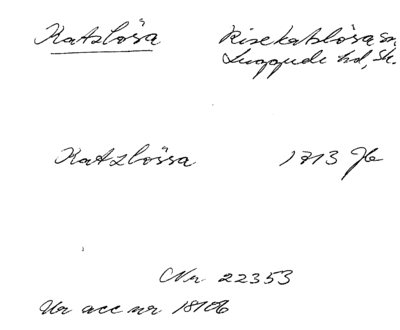 Katslösa Risekatslösa sn,
Luggude hd, Sk.
Katzlössa 1713 Jb
Nr 22353
Ur acc nr 18106